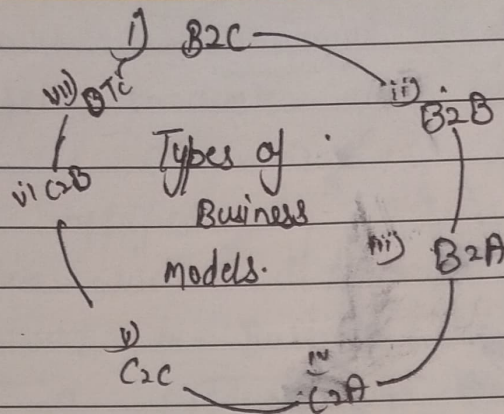 i) B2C
ii) B2B
iii) B2A
iv C2A
v) C2C
vi) C2B
vii) DTC
Types of
Business
models.